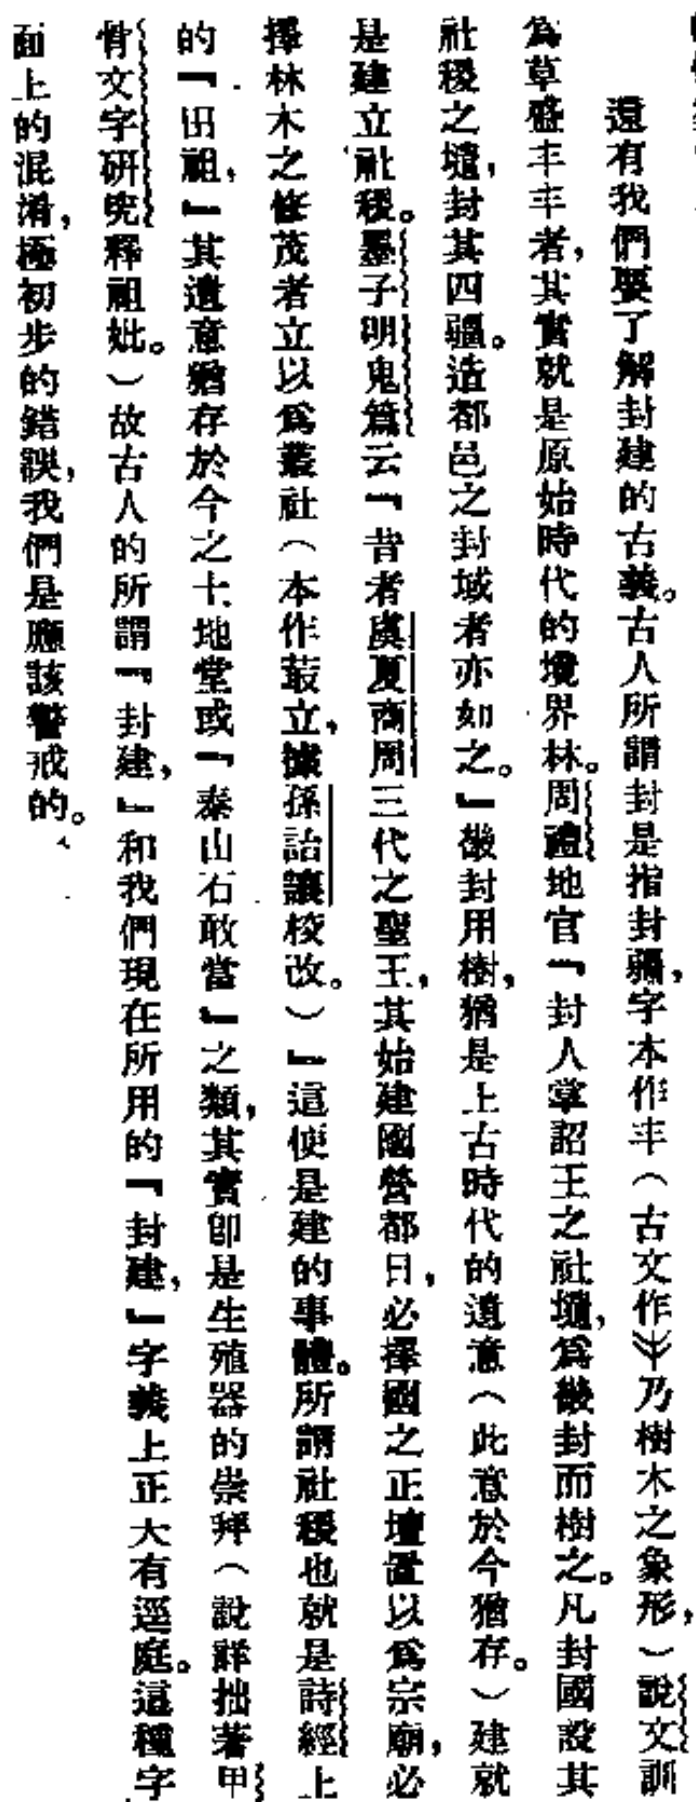 還有我們要了解封建的古義。古人所謂封是指封疆，字本作丰（古文作乃樹木之象形，）說文訓
為草盛丰丰者，其實就是原始時代的境界林。周禮地官「封人掌詔王之社壝，為畿封而樹之。凡封國設其
社稷之壝，封其四疆。造都邑之封域者亦如之。」畿封用樹，猶是上古時代的遺意（此意於今猶存。）建就
是建立社稷。墨子明鬼篇云「昔者虞夏商周三代之聖王，其始建國營都日，必擇國之正壇置以為宗廟，必
擇林木之修茂者立以為叢社（本作菆立，據孫詒讓校改。）」這便是建的事體。所謂社稷也就是詩經上
的「田祖，」其遺意猶存於今之土地堂或「泰山石敢當」之類，其實即是生殖器的崇拜（說詳拙著甲
骨文字研究釋祖妣。）故古人的所謂「封建，」和我們現在所用的「封建，」字義上正大有逕庭。這種字
面上的混淆，極初步的錯誤，我們是應該警戒的。